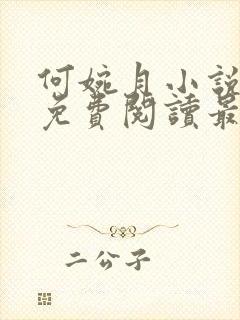 何婉月小說
免費閱讀最
二公子